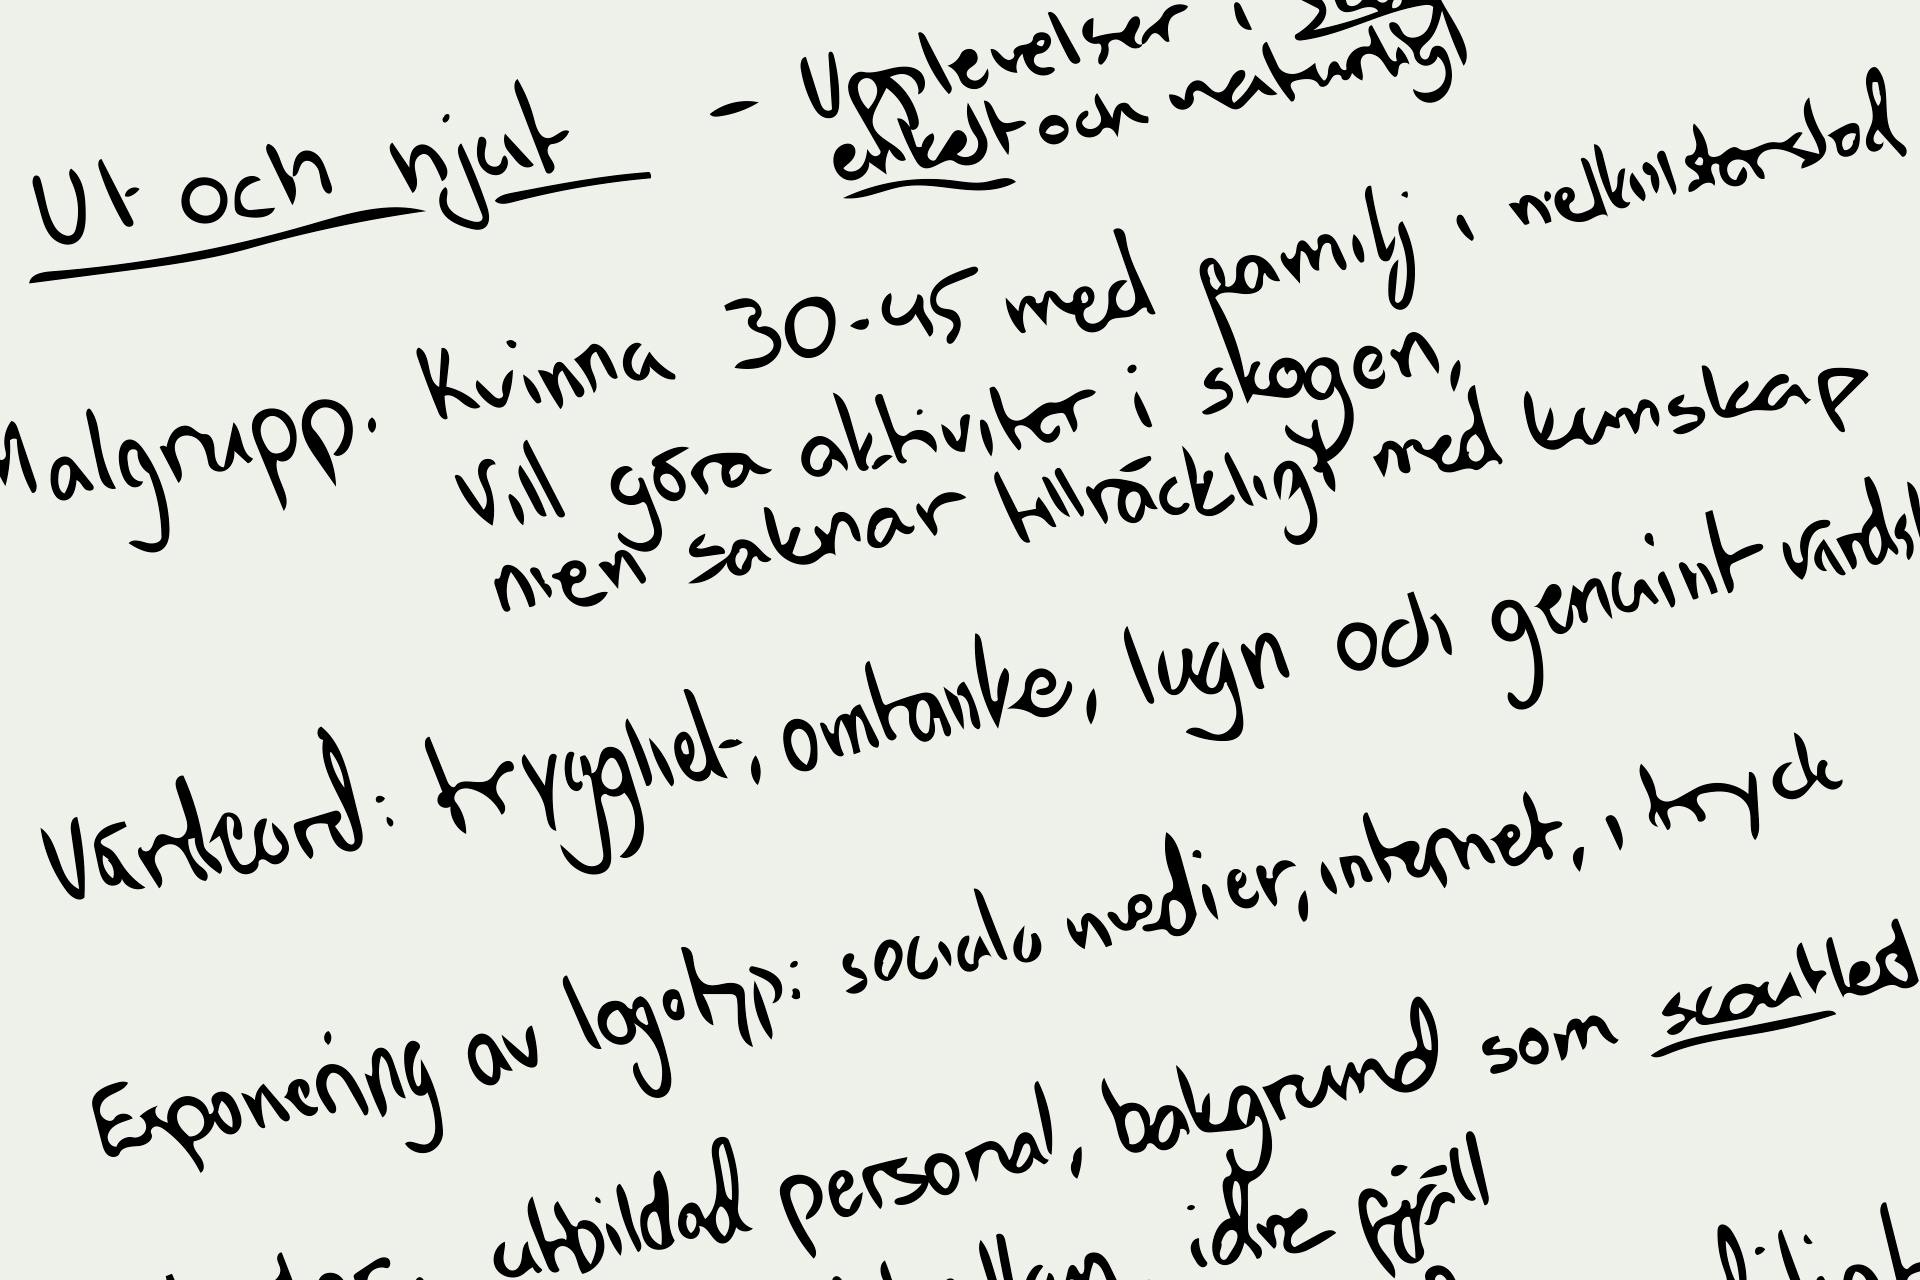 Ut och njut - Upplevelser i
enkelt och naturligt
Målgrupp. Kvinna 30-45 med familj i mellanstorstad
Vill göra aktiviter i skogen,
men saknar tillräckligt med kunskap
Värdeord: trygghet, omtanke, lugn och genuint värdsk
Exponering av logotyp: sociala medier, internet, i tryck
utbildad personal, bakgrund som scoutled
idre fjäll